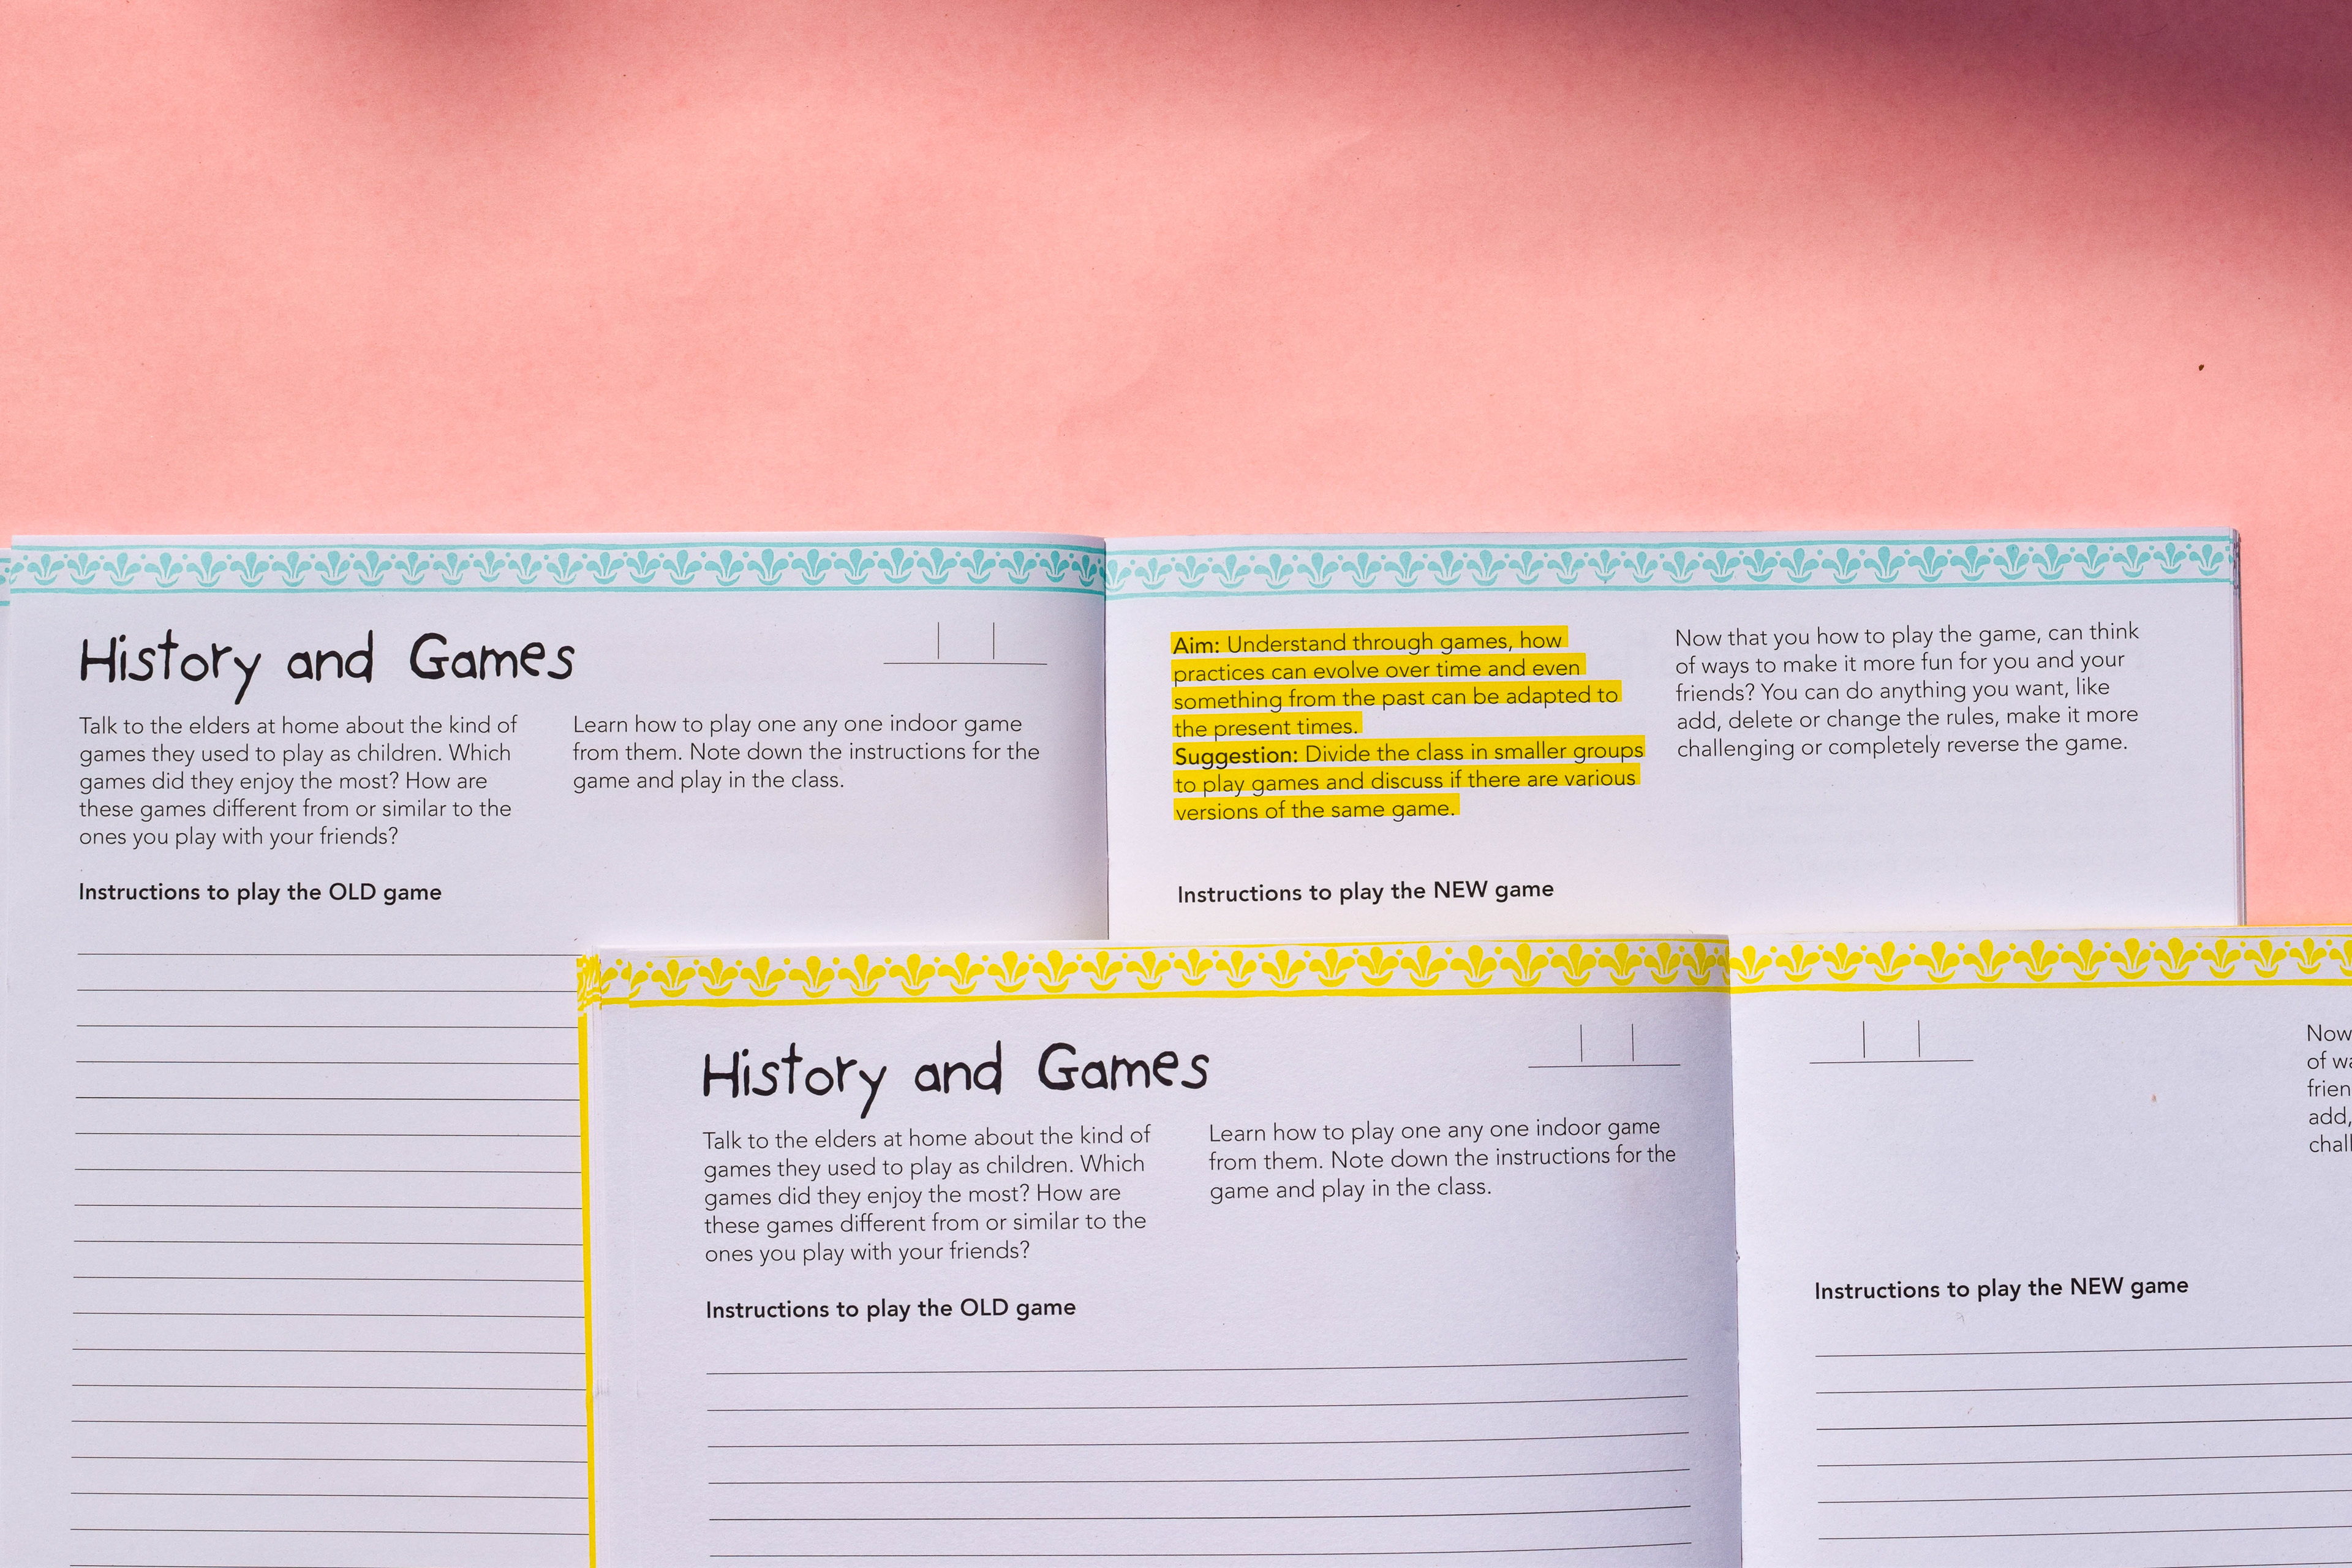 History and Games
Talk to the elders at home about the kind of
games they used to play as children. Which
games did they enjoy the most? How are
these games different from or similar to the
ones you play with your friends?
Learn how to play one any one indoor game
from them. Note down the instructions for the
game and play in the class.
Instructions to play the OLD game
Aim: Understand through games, how
practices can evolve over time and even
something from the past can be adapted to
the present times.
Suggestion: Divide the class in smaller groups
to play games and discuss if there are various
versions of the same game.
Now that you how to play the game, can think
of ways to make it more fun for you and your
friends? You can do anything you want, like
add, delete or change the rules, make it more
challenging or completely reverse the game.
Instructions to play the NEW game
History and Games
Talk to the elders at home about the kind of
games they used to play as children. Which
games did they enjoy the most? How are
these games different from or similar to the
ones you play with your friends?
Learn how to play one any one indoor game
from them. Note down the instructions for the
game and play in the class.
Instructions to play the OLD game
Now
of
add,
Instructions to play the NEW game